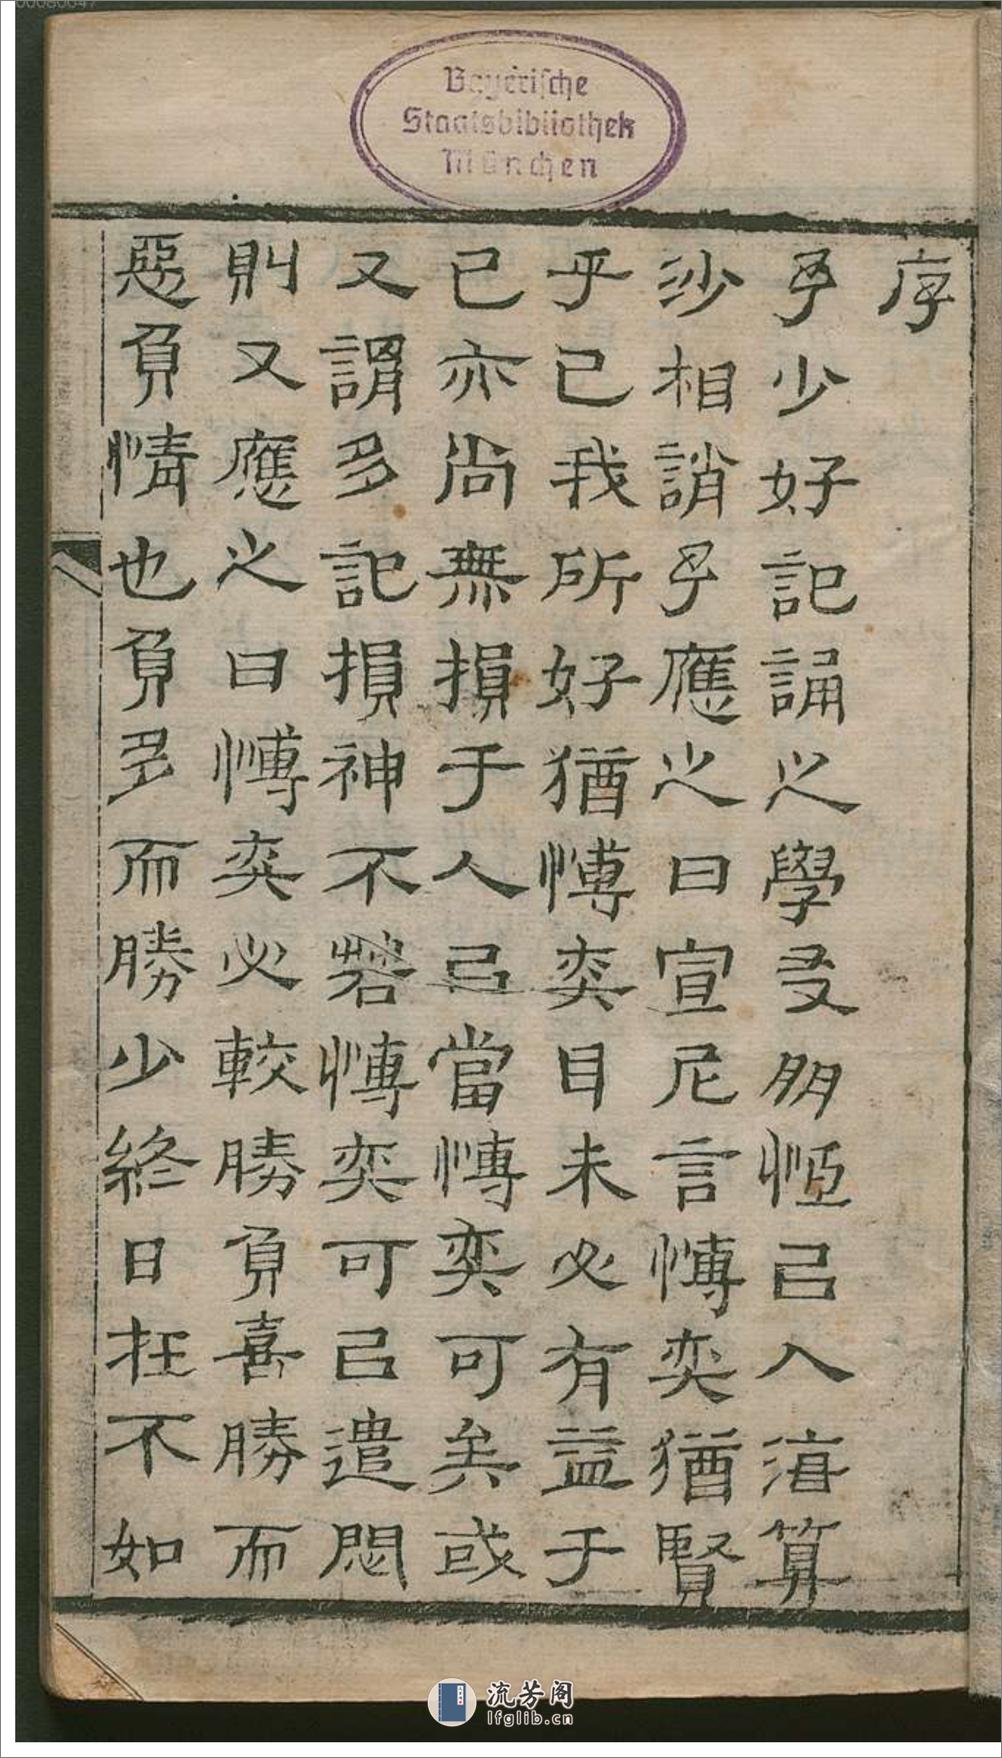 00080047
Bayerische
Staatsbibliothek
München
序
予少好記誦之學友朋恆以入海算
沙相誚予應之曰宣尼言博奕猶賢
乎已我所好猶博奕耳未必有益于
已亦尚無損于人以當博奕可矣或
又謂多記損神不若博奕可以遣悶
則又應之曰博奕必較勝負喜勝而
惡負情也負多而勝少終日抂不如
流芳阁
lfglib.cn